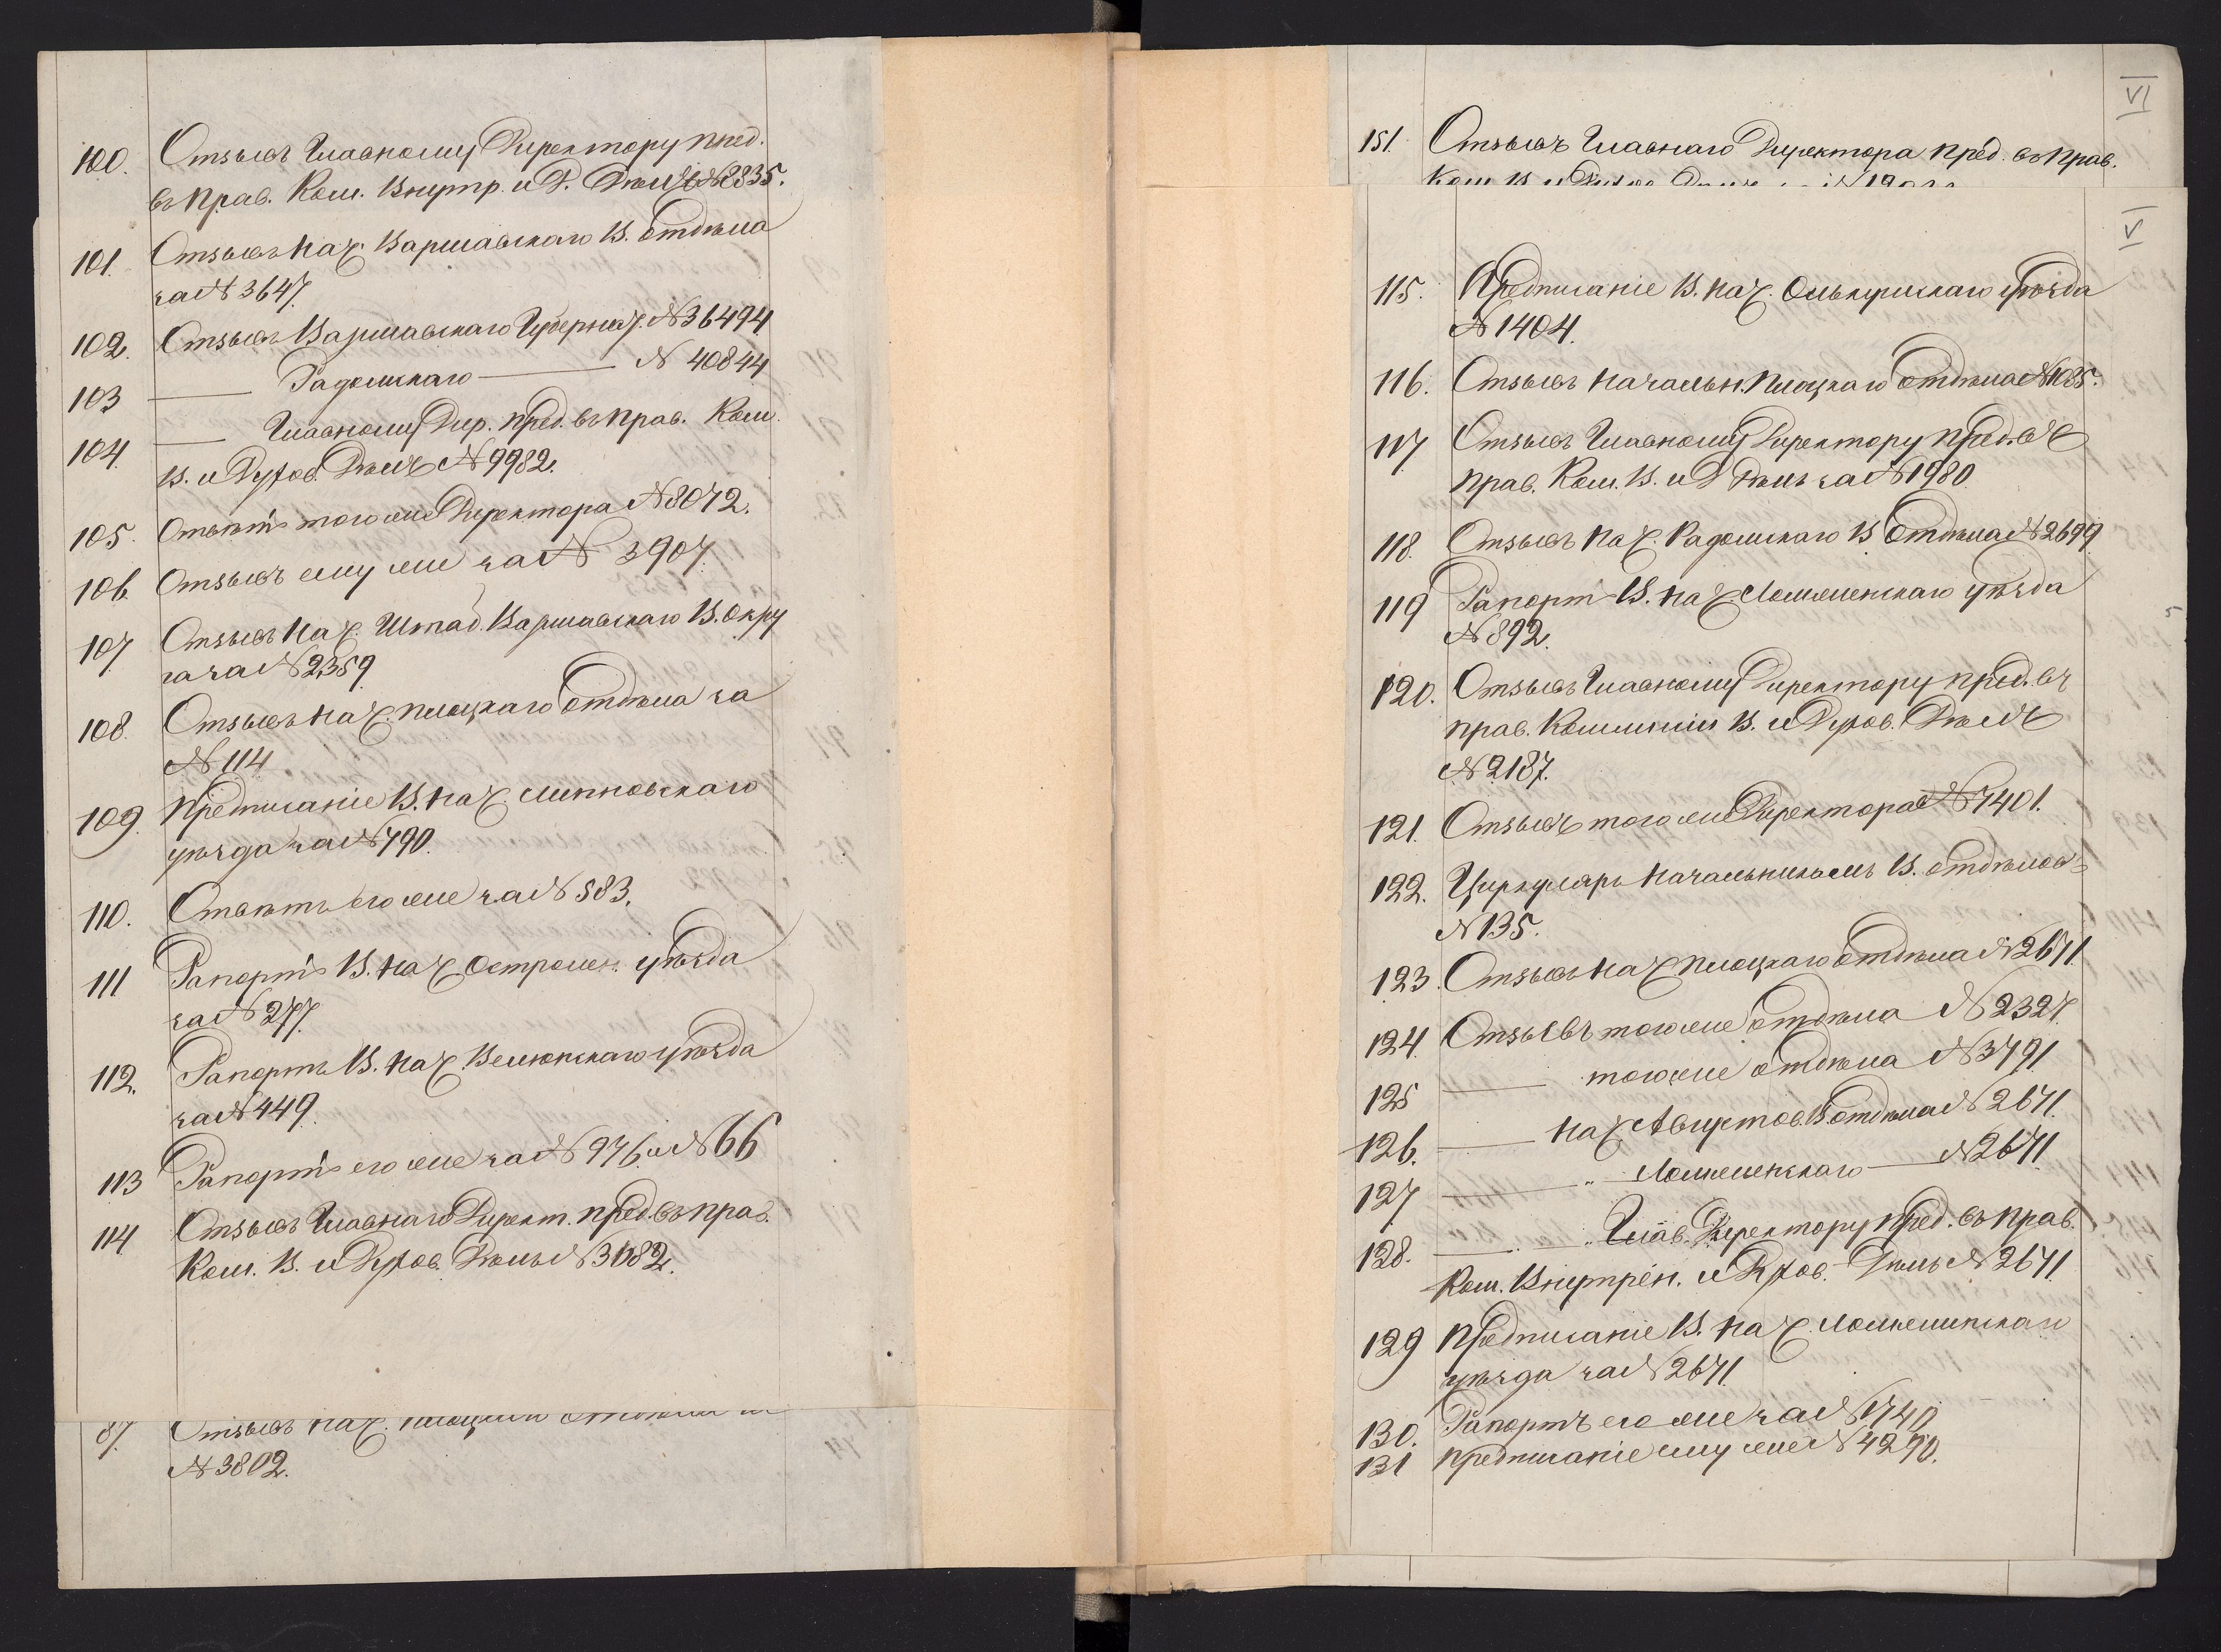 100. Отзывъ Главному Директору пред.
въ Прав. Ком. Внутр. и Д. Дѣлъ № 2835.
101. Отзывъ Нач. Варшавскаго В. Отдѣла
за № 3647.
102. Отзывъ Варшавскаго Губернат. № 36494
103 — Радомскаго — № 40844
104. — Главному Дир. пред. въ Прав. Ком.
В. и Духов. Дѣлъ № 9982.
105. Отвѣтъ того же Директора № 8072.
106. Отзывъ ему же за № 3907.
107. Отзывъ Нач. Штаб. Варшавскаго В. Окру
га за № 2359
108. Отзывъ Нач. Плоцкаго Отдѣла за
№ 114
109. Предписаніе В. Нач. Липновскаго
уѣзда за № 790.
110. Отвѣтъ его же за № 583.
111 Рапортъ В. Нач. Остролен. уѣзда
за № 277.
112. Рапортъ В. Нач. Велюнскаго уѣзда
за № 449.
113 Рапортъ его же за № 976. и № 66
114 Отзывъ Главнаго Директ. пред. въ Прав.
Ком. В. и Духов. Дѣлъ № 3082.
87. Отзывъ Нач. Плоцкаго Отдѣла за
№ 3802.
VI
151. Отзывъ Главнаго Директора пред. въ Прав.
V
115. Предписаніе В. Нач. Олькушскаго уѣзда
№ 1404.
116. Отзывъ Начальн. Плоцкаго Отдѣла № 1035.
117 Отзывъ Главному Директору пред. въ
Прав. Ком. В. и Д. Дѣлъ за № 1980
118. Отзывъ Нач. Радомскаго В. Отдѣла № 2699
119 Рапортъ В. Нач. Ломженскаго уѣзда
№ 892.
120. Отзывъ Главному Директору пред. въ
Прав. Коммисіи В. и Духов. Дѣлъ
№ 2187.
121. Отзывъ того же Директора № 7401.
122. Циркуляръ Начальникамъ В. Отдѣловъ
№ 135.
123. Отзывъ Нач. Плоцкаго Отдѣла № 2671
124. Отзывъ того же Отдѣла № 2327
125 — того же Отдѣла № 3791
126. — Нач. Августов. В. Отдѣла № 2671
127 — „ Ломженскаго — № 2671
128. — „ Глав. Директору пред. въ Прав.
Ком. Внутрен. и Духов. Дѣлъ № 2671
129 Предписаніе В. Нач. Ломжинскаго
уѣзда за № 2671
130. Рапортъ его же за № 1740
131 Предписаніе ему же № 4290.